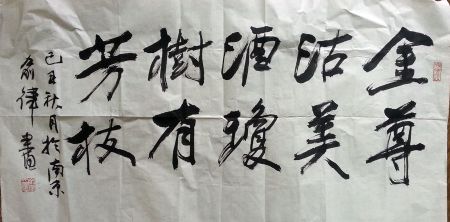 金尊
沽美
酒瓊
樹有
芳枝
己丑秋月於南京
俞律書